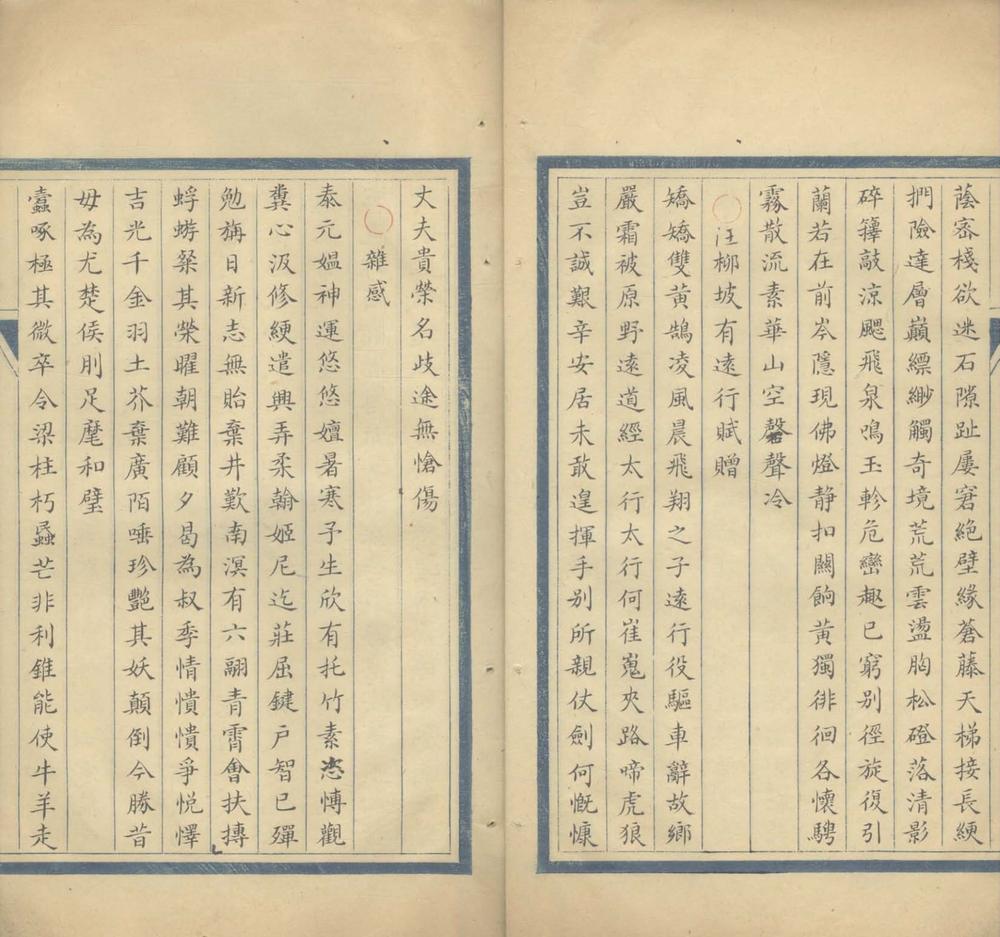 蔭密棧欲迷石隙趾屢窘絕壁緣蒼藤天梯接長綆
捫險達層巔縹緲觸奇境荒荒雲盪胸松磴落清影
碎籜敲涼颸飛泉鳴玉軫危巒趣已窮别徑旋復引
蘭若在前岑隱現佛燈静扣關餉黄獨徘徊各懷騁
霧散流素華山空磬聲冷
汪柳坡有遠行賦贈
矯矯雙黄鵠凌風晨飛翔之子遠行役驅車辭故鄉
嚴霜被原野逺道經太行太行何崔嵬夾路啼虎狼
豈不誠艱辛安居未敢遑揮手别所親仗劍何慨慷
丈夫貴榮名歧途無愴傷
雜感
泰元媪神運悠悠嬗暑寒予生欣有托竹素恣博觀
冀心汲修綆遣興弄柔翰姬尼迄莊屈鍵户智已殫
勉旃日新志無貽棄井歎南溟有六翮青霄會扶摶
蜉蝣粲其榮曜朝難顧夕曷為叔季情憒憒爭悅懌
吉光千金羽土芥棄廣陌唾珍艷其妖顛倒今勝昔
毋為尤楚侯刖足麾和璧
蠹啄極其微卒令梁柱朽蝨芒非利錐能使牛羊走